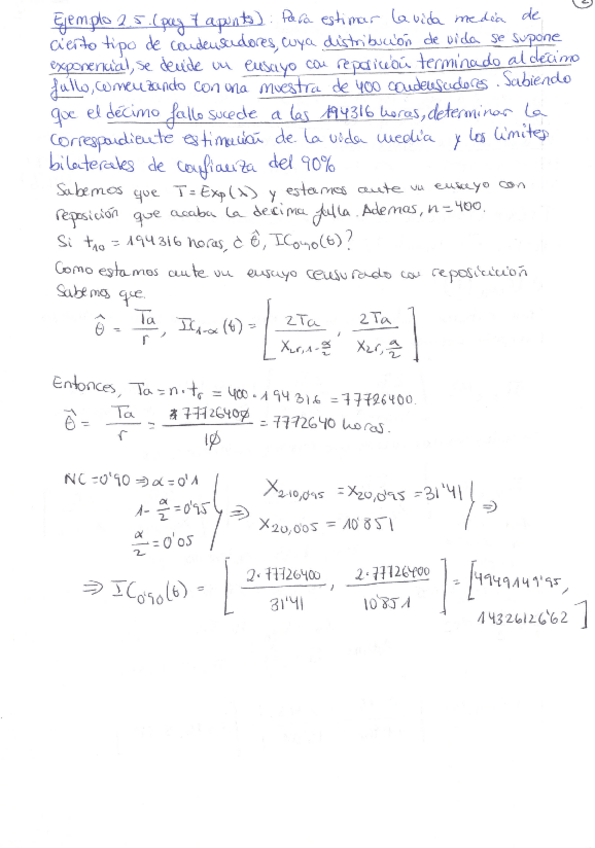 2
Ejemplo 2.5. (pag 7 apuntes): Para estimar la vida media de
cierto tipo de condensadores, cuya distribución de vida se supone
exponencial, se decide un ensayo con reposición terminado al décimo
fallo, comenzando con una muestra de 400 condensadores. Sabiendo
que el décimo fallo sucede a las 194316 horas, determinar la
correspondiente estimación de la vida media y los límites
bilaterales de confianza del 90%
Sabemos que T = Exp(λ) y estamos ante un ensayo con
reposición que acaba la decima falla. Ademas, n = 400.
Si t₁₀ = 194316 horas, ¿ θ̂, IC₀'₉₀(θ)?
Como estamos ante un ensayo censurado con reposición
Sabemos que
θ̂ = Ta / r , IC₁₋α(θ) = [ 2Ta / X₂r,₁₋α/₂ , 2Ta / X₂r,α/₂ ]
Entonces, Ta = n · tᵣ = 400 · 194316 = 77726400.
θ̂ = Ta / r = 77726400 / 10 = 7772640 horas.
NC = 0'90 ⇒ α = 0'1
1 - α/2 = 0'95
α/2 = 0'05
⇒ X₂·₁₀,₀'₉₅ = X₂₀,₀'₉₅ = 31'41
X₂₀,₀'₀₅ = 10'851 ⇒
⇒ IC₀'₉₀(θ) = [ 2·77726400 / 31'41 , 2·77726400 / 10'851 ] = [4949149'95,
14326126'62]